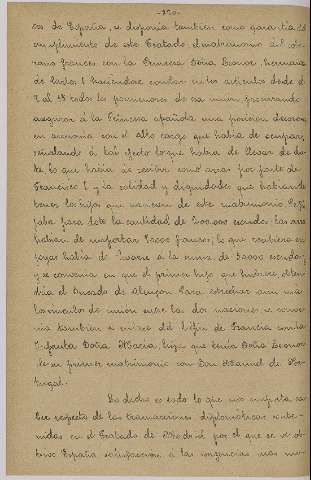 -120-
cos de España, se disponía también como garantía del
cumplimiento de este Tratado el matrimonio del so-
berano francés con la Princesa Doña Leonor hermana
de Carlos I haciendose constar en los artículos desde el
al 18 todos los pormenores de esa union procurando
asegurar á la Princesa española una posicion decorosa
en armonia con el alto cargo que había de ocupar,
señalando á tal efecto lo que había de llevar de do-
te, lo que había de recibir como arras por parte de
Francisco I y la calidad y dignidades que habian de
tener los hijos que naciesen de este matrimonio. Se fi-
jaba para dote la cantidad de 200.000 escudos; las arras
habian de importar francos; lo que recibiera en
joyas había de á la suma de 50000 escudos,
y se convenia en que el primer hijo que hubiere, obten-
dria el Ducado de Alençon. Para estrechar aun más
los vínculos de union entre las dos naciones se conve-
nia tambien el enlace del Delfin de Francia con la
Infanta Doña María, hija que tenía Doña Leonor
de su primer matrimonio con Don Manuel de Por-
tugal.
Lo dicho es todo lo que nos importa sa-
ber respecto de las transacciones diplomáticas conte-
nidas en el Tratado de Madrid por el que se ve ob-
tuvo España satisfaccion á las exigencias más